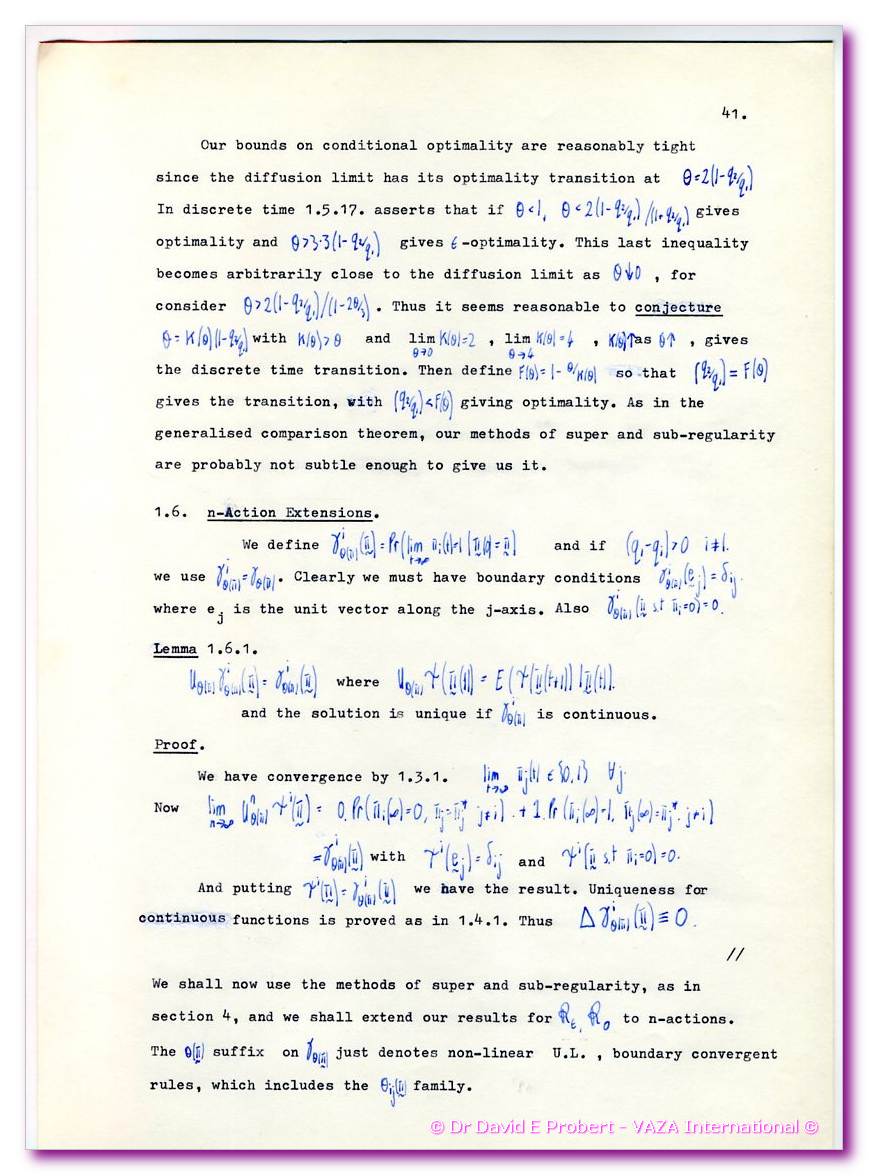 41.
Our bounds on conditional optimality are reasonably tight
since the diffusion limit has its optimality transition at θ=2(1-q₂/q₁)
In discrete time 1.5.17. asserts that if θ<1, θ<2(1-q₂/q₁)/(1+q₂/q₁) gives
optimality and θ>3·3(1-q₂/q₁) gives ε-optimality. This last inequality
becomes arbitrarily close to the diffusion limit as θ↓0 , for
consider θ>2(1-q₂/q₁)/(1-2θ/3). Thus it seems reasonable to conjecture
θ=K(θ)(1-q₂/q₁) with K(θ)>θ and lim K(θ)=2 , lim K(θ)=4 , K(θ)↑ as θ↑ , gives
θ→0 θ→4
the discrete time transition. Then define F(θ)=1-θ/K(θ) so that (q₂/q₁)=F(θ)
gives the transition, with (q₂/q₁)<F(θ) giving optimality. As in the
generalised comparison theorem, our methods of super and sub-regularity
are probably not subtle enough to give us it.
1.6. n-Action Extensions.
We define γⁱθ(π)(π)=Pr(lim πᵢ(t)=1 | π(0)=π) and if (q₁-qᵢ)>0 i≠1.
t→∞
we use γ¹θ(π)=γθ(π). Clearly we must have boundary conditions γⁱθ(π)(eⱼ)=δᵢⱼ.
where eⱼ is the unit vector along the j-axis. Also γⁱθ(π)(π s.t πᵢ=0)=0.
Lemma 1.6.1.
Uθ(π)γⁱθ(π)(π)=γⁱθ(π)(π) where Uθ(π)ψ(π(t))=E(ψ(π(t+1))|π(t)).
and the solution is unique if γⁱθ(π) is continuous.
Proof.
We have convergence by 1.3.1. lim πⱼ(t) ∈{0,1} ∀j.
t→∞
Now lim Uⁿθ(π)ψⁱ(π) = 0.Pr(πᵢ(∞)=0, πⱼ=πⱼ* j≠i) + 1.Pr(πᵢ(∞)=1, πⱼ(∞)=πⱼ* j≠i)
n→∞
=γⁱθ(π)(π) with ψⁱ(eⱼ)=δᵢⱼ and ψⁱ(π s.t πᵢ=0)=0.
And putting ψⁱ(π)=γⁱθ(π)(π) we have the result. Uniqueness for
continuous functions is proved as in 1.4.1. Thus Δγⁱθ(π)(π)≡0.
//
We shall now use the methods of super and sub-regularity, as in
section 4, and we shall extend our results for Rε, R₀ to n-actions.
The θ(π) suffix on γθ(π) just denotes non-linear U.L. , boundary convergent
rules, which includes the θᵢⱼ(π) family.
© Dr David E Probert – VAZA International ©